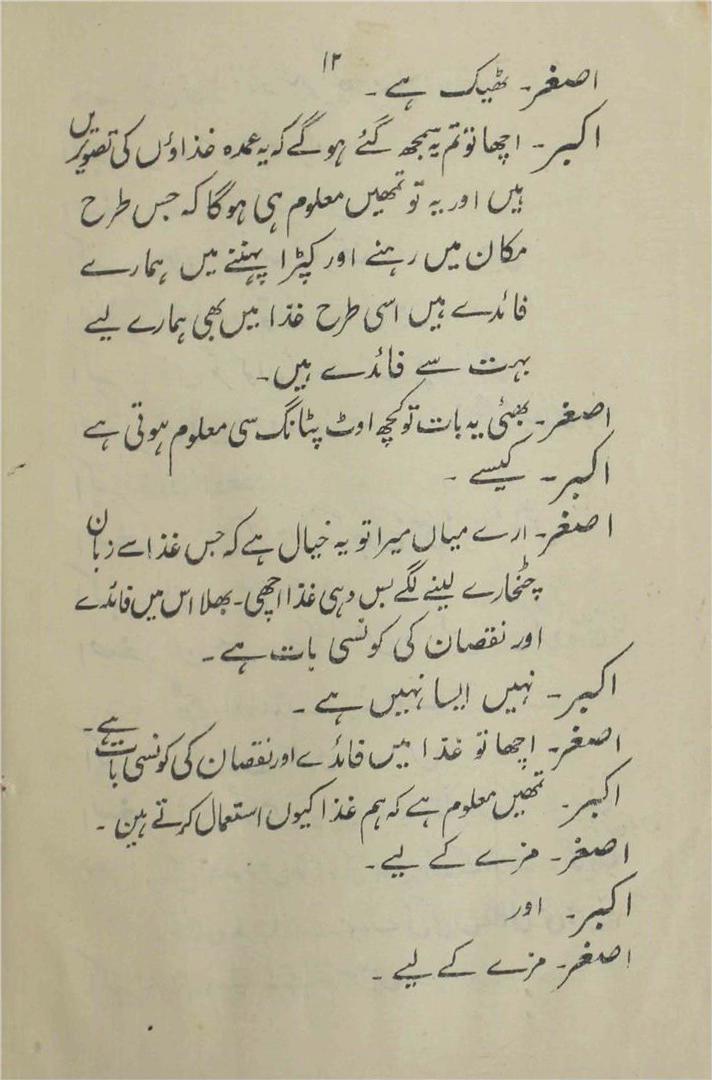 ۱۲
اصغر۔ ٹھیک ہے۔
اکبر۔ اچھا تو تم یہ سمجھ گئے ہوگے کہ یہ عمدہ غذاؤں کی تصویریں
ہیں اور یہ تو تمھیں معلوم ہی ہوگا کہ جس طرح
مکان میں رہنے اور کپڑا پہننے میں ہمارے
فائدے ہیں اسی طرح غذا میں بھی ہمارے لیے
بہت سے فائدے ہیں۔
اصغر۔ بھئی یہ بات تو کچھ اوٹ پٹانگ سی معلوم ہوتی ہے
اکبر۔ کیسے۔
اصغر۔ ارے میاں میرا تو یہ خیال ہے کہ جس غذا سے زبان
چٹخارے لینے لگے بس وہی غذا اچھی۔ بھلا اس میں فائدے
اور نقصان کی کونسی بات ہے۔
اکبر۔ نہیں ایسا نہیں ہے۔
اصغر۔ اچھا تو غذا میں فائدے اور نقصان کی کونسی بات ہے۔
اکبر۔ تمھیں معلوم ہے کہ ہم غذا کیوں استعمال کرتے ہین۔
اصغر۔ مزے کے لیے۔
اکبر۔ اور
اصغر۔ مزے کے لیے۔